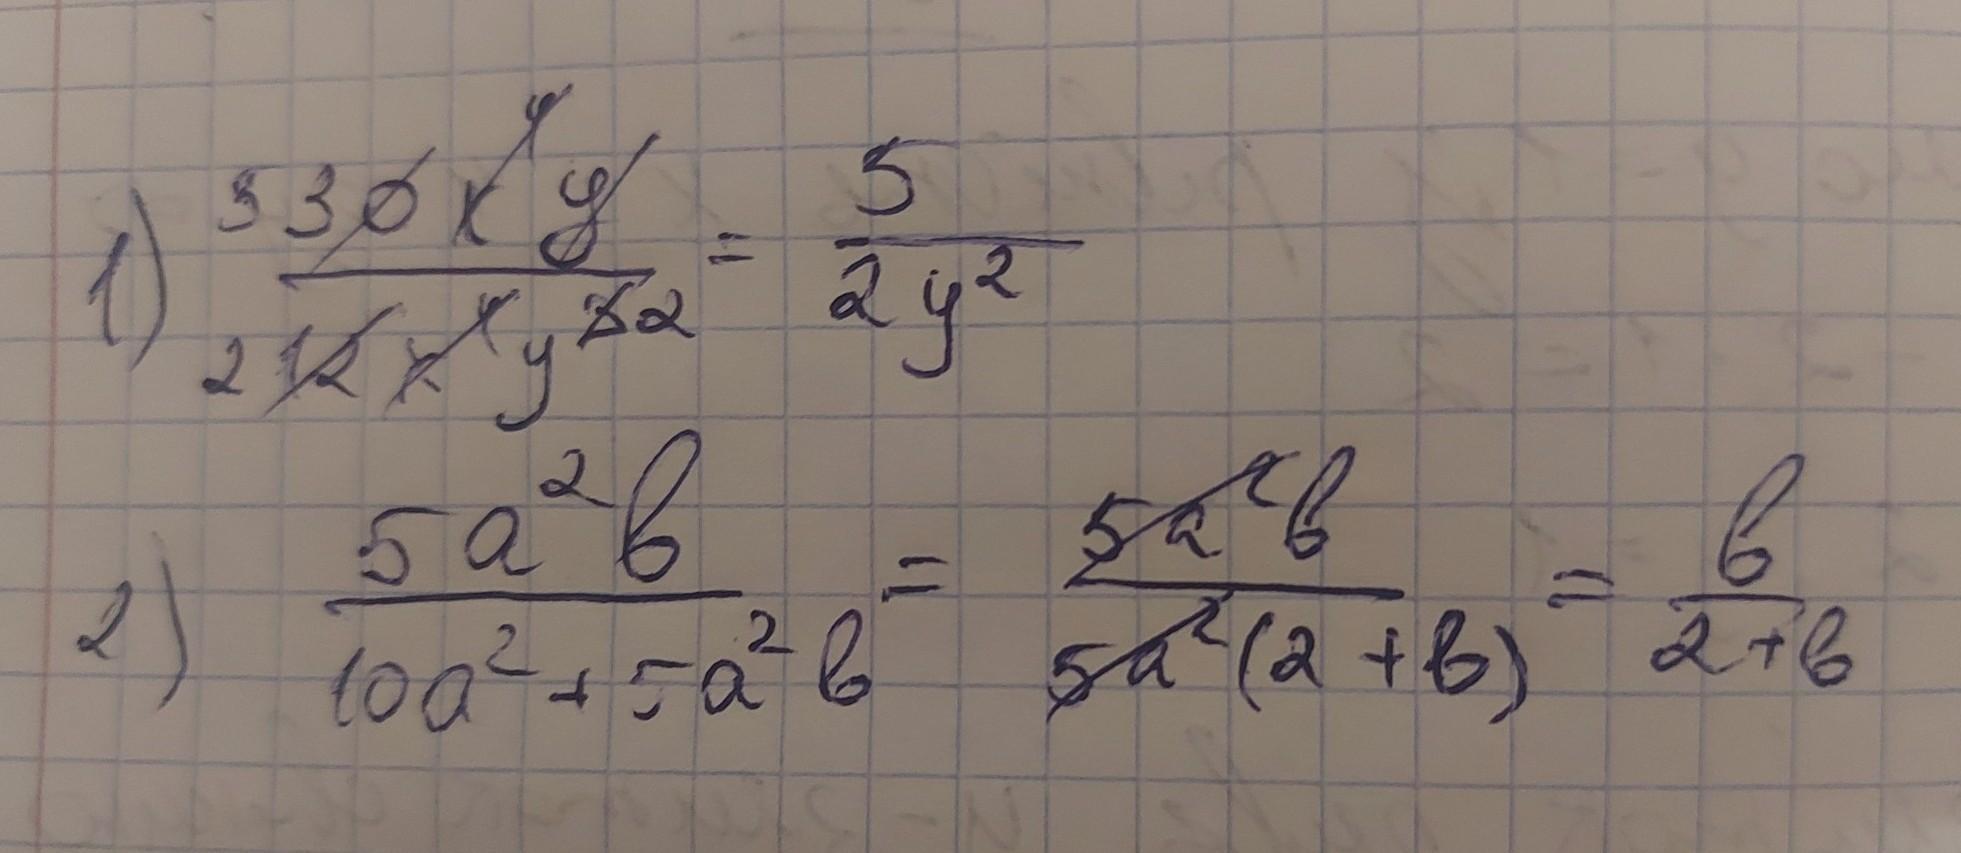 1) 30x⁴y / 12x⁴y³ = 5 / 2y²
2) 5a²b / 10a² + 5a²b = 5a²b / 5a²(2 + b) = b / 2+b